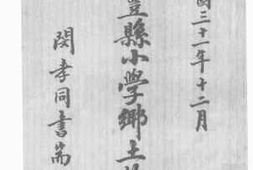 國三十一年十二月
豐縣小學鄉土
閔孝同書耑